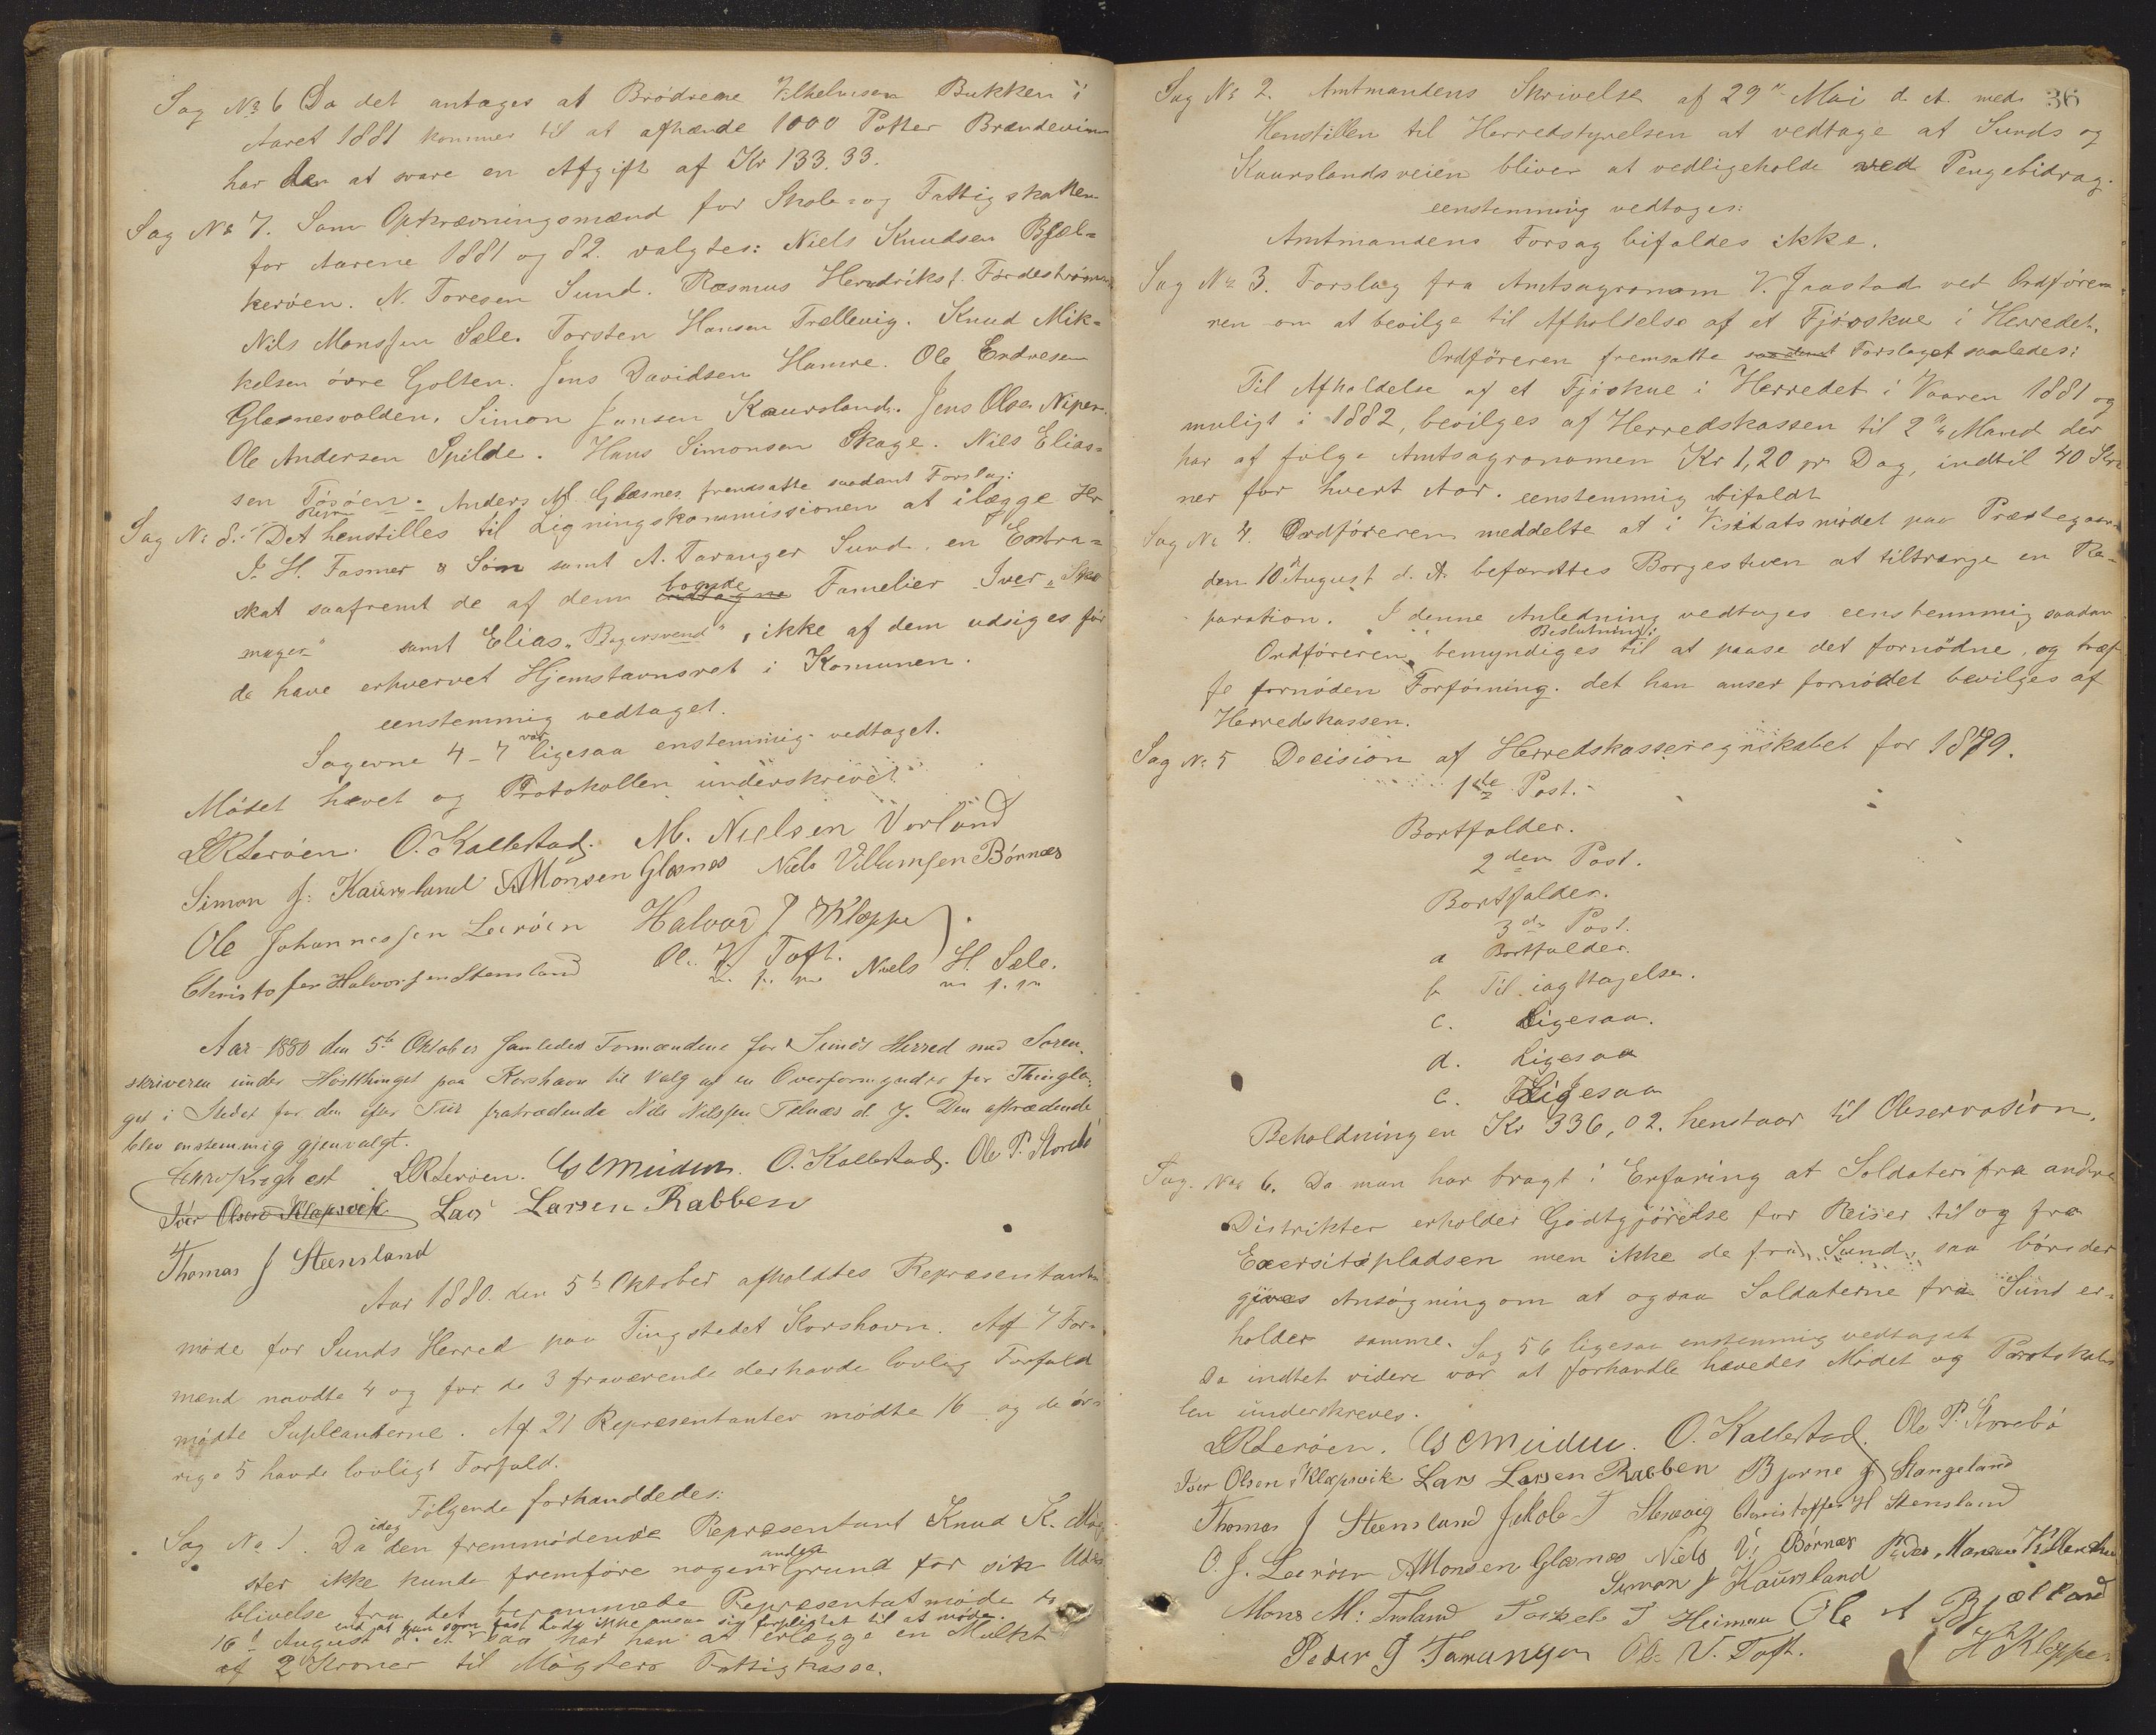 Sag No 6 Da det antages at Brödrene Vilhelmsen Bukken i
Aaret 1881 kommer til at afhænde 1000 Potter Brændeviin
har den at svare en Afgift af Kr 133.33.
Sag No 7. Som Opkrævningsmænd for Skole- og Fattigskatten
for Aarene 1881 og 82. valgtes: Niels Knudsen Bjæl-
keröen. N. Toresen Sund. Rasmus Hendriks. Fördeströmmen
Nils Monssen Sæle. Torsten Hansen Trællevig. Knud Mik-
kelsen övre Golten. Jens Davidsen Hamre. Ole Endresen
Glæsnesvalden. Simon Jansen Kaursland. Jens Olsen Nipen.
Ole Andersen Spilde. Hans Simonsen Skage. Nils Elias-
sen Tösöen. Anders M. Glæsnes fremsatte saadant Forslag:
Sag No 8. Det henstilles til Ligningskommissionen at ilægge Hr
J. H. Fasmer & Sön samt A. Taranger Sund, en Extra-
skat saafremt de af dem indtagne boende Familier Iver "Sko
mager" samt Elias "Bagersvend", ikke af dem udsiges för
de have erhvervet Hjemstavnsret i Komunen.
eenstemmig vedtaget.
Sagerne 4-7 var ligesaa enstemmig vedtaget.
Mödet hævet og Protokollen underskrivet
LRLeröen. O. Kallestad. M. Nielsen Vorland
Simon J: Kaursland AMonsen Glæsnes Niels Villumsen Börnæs
Ole Johannessen Leeröen Halvor J Kleppe
Christofer Halvorsen Stensland Ole V. Toft. Niels H. Sæle.
m. p. m. m. p. m.
Aar 1880 den 5te Oktober samledes Formændene for Sunds Herred med Soren-
skriveren under Höstthinget paa Korshavn til Valg af en Overformynder for Thingla-
get i Stedet for den efter Tur fratrædende Nils Nilssen Telnæs d. y. Den aftrædende
blev enstemmig gjenvalgt.
LRLeröen. O. Kallestad. Ole P. Storebö
Iver Olsen Klepsvik Lars Larsen Rabben
Thomas J Steensland
Aar 1880. den 5te Oktober afholdtes Repræsentant-
möde for Sunds Herred paa Tingstedet Korshavn. Af 7 For-
mænd mödte 4 og for de 3 fraværende der havde lovlig Forfald
mödte Supleanterne. Af 21 Repræsentanter mödte 16 og de öv-
rige 5 havde lovligt Forfald.
Fölgende forhandledes:
Sag No 1. Da den idag fremmödende Repræsentant Knud K. Mög
ster ikke kunde fremföre nogen anden Grund for sin Ude
blivelse fra det berammede Repræsentatmöde den
16de August d. A. end at han som fast Lods ikke ansaa sig forpligtet til at möde. saa har han at erlægge en Mulkt
af 2 Kroner til Mögsters Fattigkasse.
36
Sag No 2. Amtmandens Skrivelse af 29de Mai d. A. med
Henstillen til Herredstyrelsen at vedtage at Sunds og
Kaurslandsveien bliver at vedligeholde ved Pengebidrag.
eenstemmig vedtoges:
Amtmandens Forsag bifaldes ikke.
Sag No 3. Forslag fra Amtsagronom V. Jaastad ved Ordföre-
ren om at bevilge til Afholdelse af et Fjöskue i Herredet.
Ordföreren fremsatte saadant Forslaget saaledes:
Til Afholdelse af et Fjöskue i Herredet i Vaaren 1881 og
muligt i 1882, bevilges af Herredskassen til 2de Mænd der
har at fölge Amtsagronomen Kr 1,20 pr Dag, indtil 40 Kro
ner for hvert Aar. eenstemmig bifaldt
Sag No 4. Ordföreren meddelte at i Visitatsmödet paa Præstegaar-
den 10de August d. A. befandtes Borgestuen at tiltrænge en Re-
paration. I denne Anledning vedtoges eenstemmig saadan
Beslutning:
Ordföreren bemyndiges til at paase det fornödne, og træf
fe fornöden Forföining. det han anser fornödet bevilges af
Herredskassen.
Sag No 5 Decision af Herredskasseregnskabet for 1879.
1ste Post.
Bortfalder.
2den Post.
Bortfalder.
3die Post.
a Bortfalder.
b Til iagttagelse.
c. Ligesaa.
d. Ligesaa
e. Ligesaa
Beholdningen Kr 336,02. henstaar til Observasion.
Sag. No 6. Da man har bragt i Erfaring at Soldater fra andre
Distrikter erholder Godtgjörelse for Reiser til og fra
Exersitspladsen men ikke de fra Sund, saa börs der
gives Ansögning om at ogsaa Soldaterne fra Sund er-
holder samme. Sag 5 6 ligesaa enstemmig vedtaget
Da indtet videre var at forhandle hævedes Mödet og Protokol
len underskreves.
LRLeröen. O. Kallestad. Ole P. Storebö
Iver Olsen Klepsvik Lars Larsen Rabben Bjarne J Stangeland
Thomas J Steensland Jakob T Steksvig Christoffer H Stensland
O. J. Leeröen AMonsen Glæsnæs Niels V: Börnæs
Simon J Kaursland
Mons M: Troland Torkel T Heimau Ole A Bjælkerö
Peder J Taranger Ole V. Toft. H Kleppe